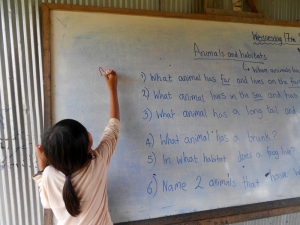 Wednesday 17th
Animals and habitats
↳ Where animals
1) What animal has fur and lives on the
2) What animal lives in the sea and has
3) What animal has a long tail and
4) What animal has a trunk?
5) In what habitat does a frog live?
6) Name 2 animals that have